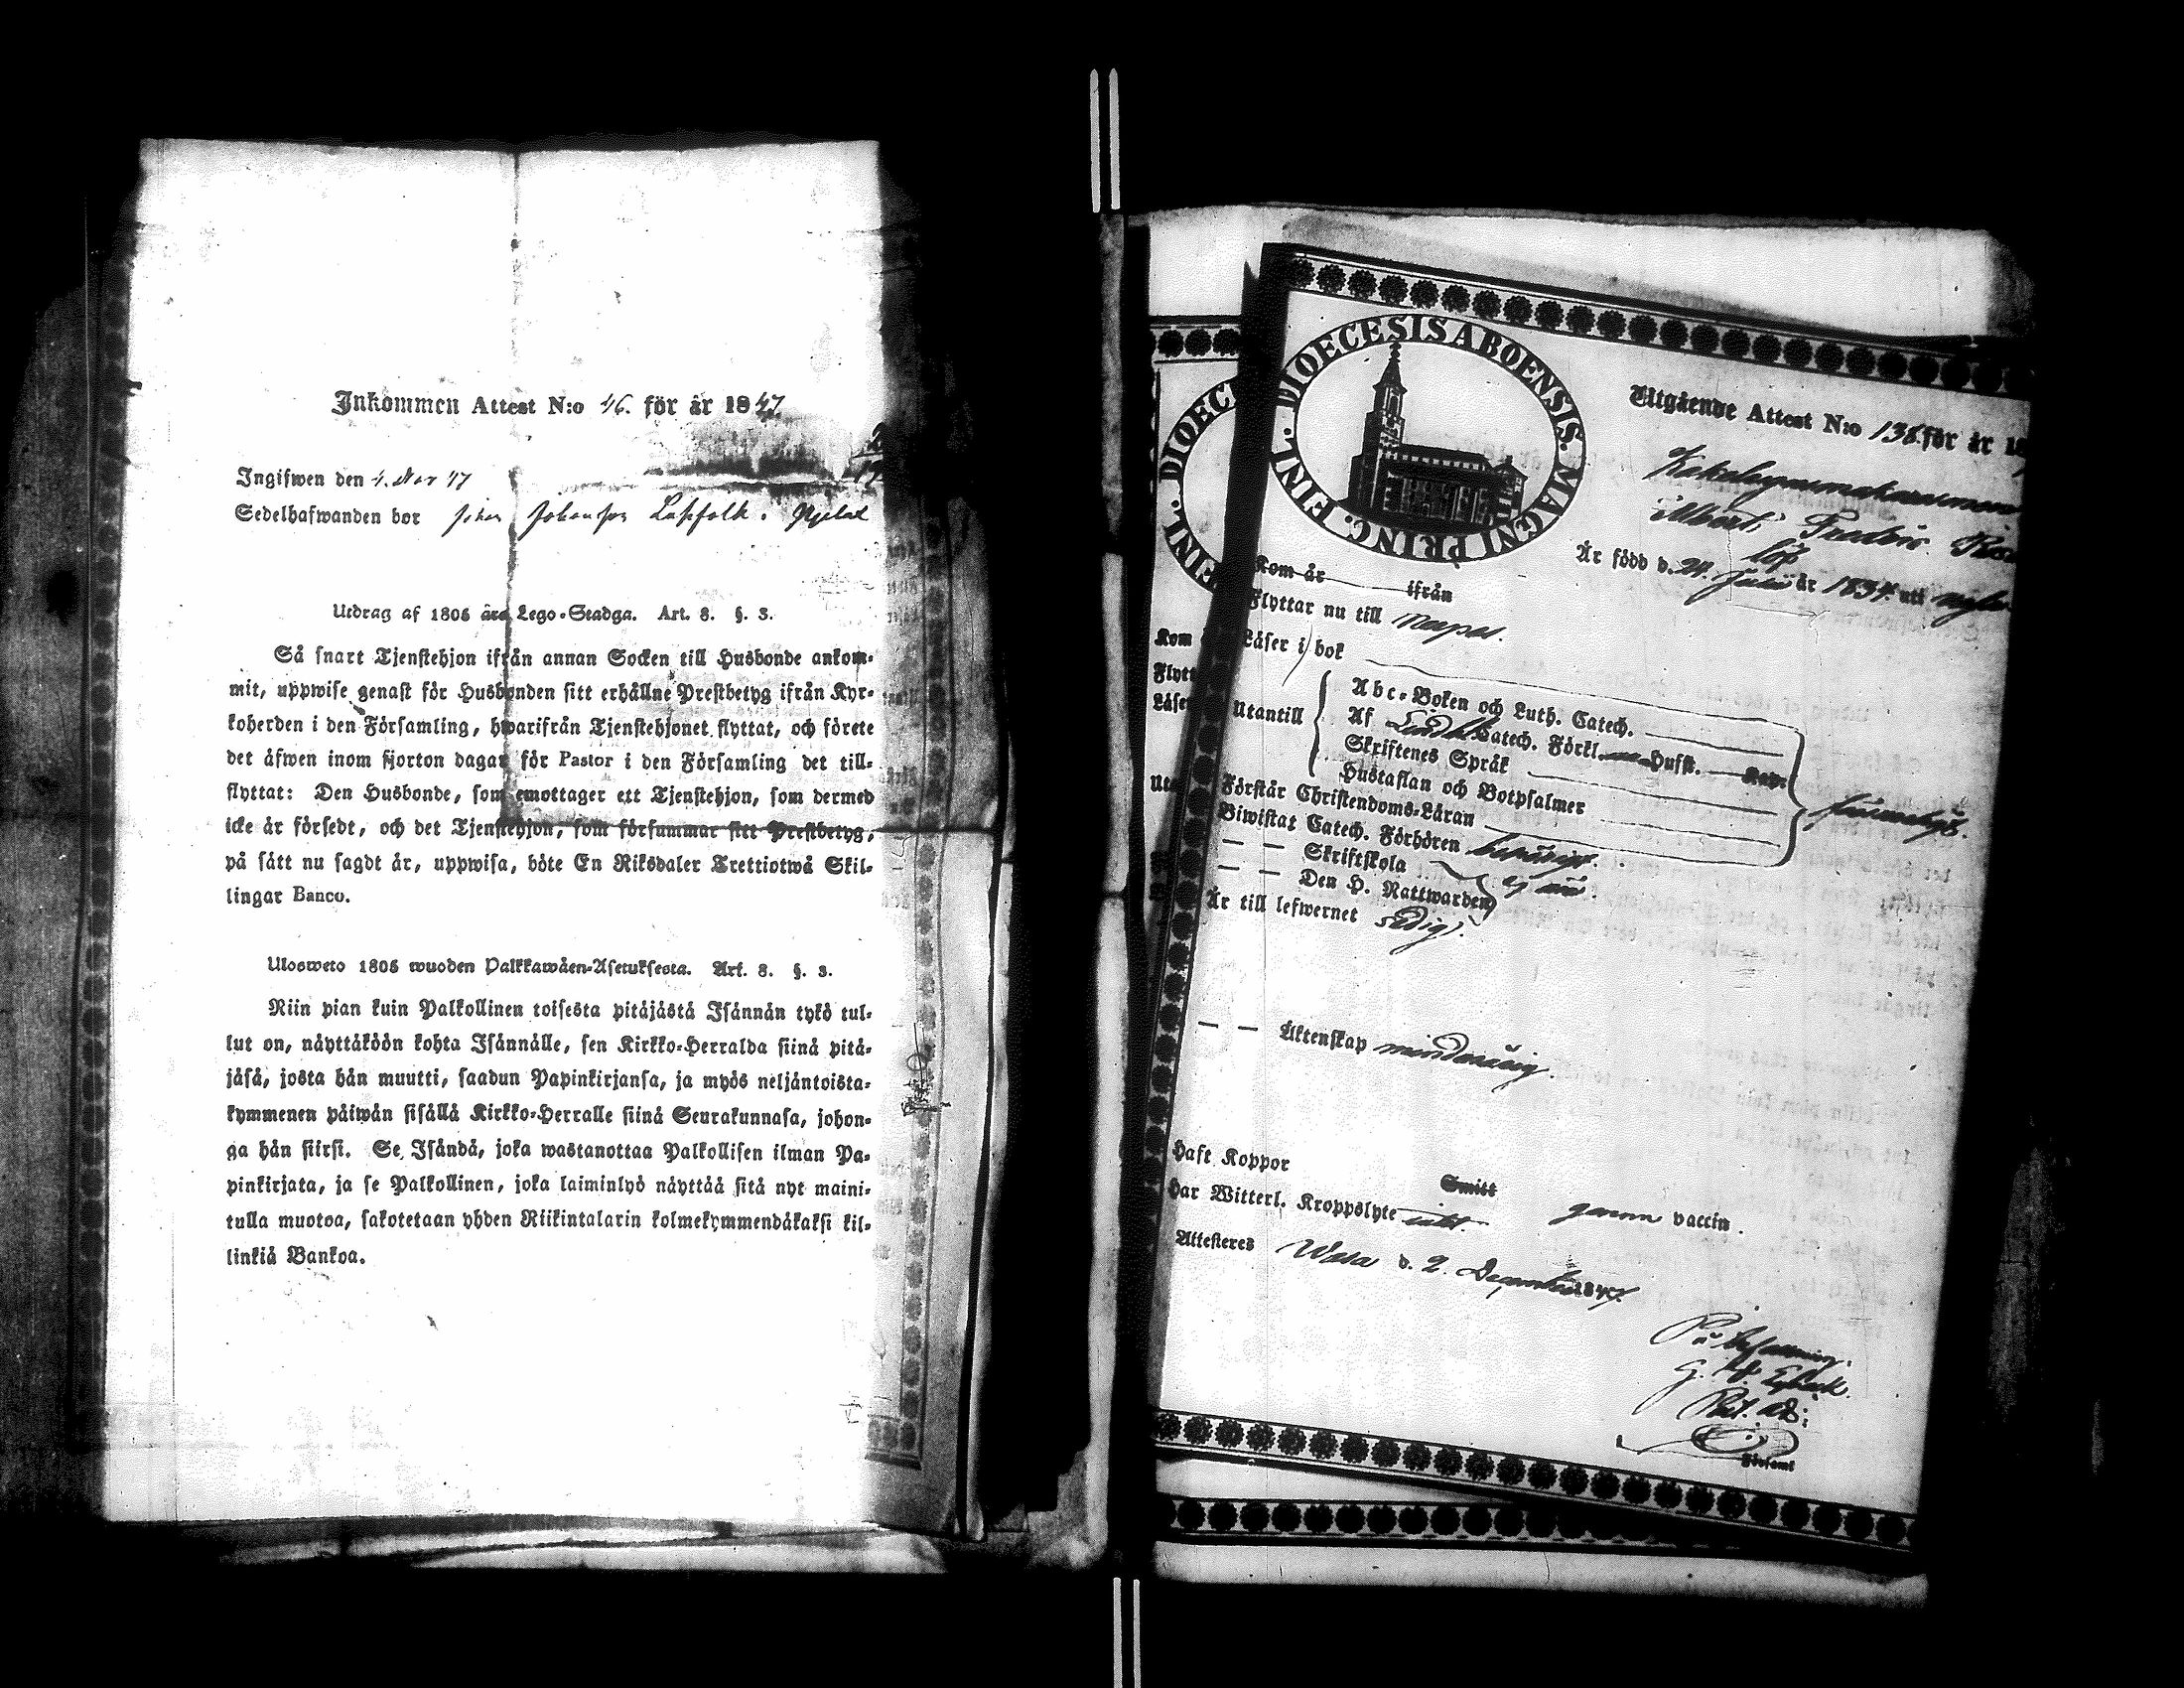 Inkommen Attest N:o 46. för år 1847
Ingifwen den 4. Nov 47
Sedelhafwanden bor
Utdrag af 1805 års Lego-Stadga. Art. 8. §. 3.
Så snart Tjenstehjon ifrån annan Socken till Husbonde ankom-
mit, uppwise genast för Husbonden sitt erhållne Prestbetyg ifrån Kyr-
koherden i den Församling, hwarifrån Tjenstehjonet flyttat, och förete
det äfwen inom fjorton dagar för Pastor i den Församling det till-
flyttat: Den Husbonde, som emottager ett Tjenstehjon, som dermed
icke är försedt, och det Tjenstehjon, som försummar sitt Prestbetyg,
på sätt nu sagdt är, uppwisa, böte En Riksdaler Trettiotwå Skil-
lingar Banco.
Ulosweto 1805 wuoden Palkkawäen-Asetuksesta. Art. 8. §. 3.
Niin pian kuin Palkollinen toisesta pitäjästä Isännän tykö tul-
lut on, näyttäköön kohta Isännälle, sen Kirkko-Herralda siinä pitä-
jäsä, josta hän muutti, saadun Papinkirjansa, ja myös neljäntoista-
kymmenen päiwän sisällä Kirkko-Herralle siinä Seurakunnasa, johon-
ga hän siirsi. Se Isändä, joka wastanottaa Palkollisen ilman Pa-
pinkirjata, ja se Palkollinen, joka laiminlyö näyttää sitä nyt maini-
tulla muotoa, sakotetaan yhden Riikintalarin kolmekymmendäkaksi kil-
linkiä Bankoa.
DIOECESIS ABOENSIS. MAGNI PRINC. FINL.
Utgående Attest N:o 138 för år 18
Albert Fredric
Är född d. 24. Julii år 1834. uti
Kom år ifrån
Flyttar nu till
Läser i bok
Utantill
Abc-Boken och Luth. Catech.
Af Catech. Förkl. Hufst.
Skriftenes Språk
Hustaflan och Botpsalmer
Förstår Christendoms-Läran
Biwistat Catech. Förhören
— — Skriftskola
— — Den H. Nattwarden
Är till lefwernet
— — Äktenskap minderårig.
Haft Koppor
Smitt
Har Witterl. Kroppslyte genom vaccin.
Attesteres Wasa d. 2. December 1847.